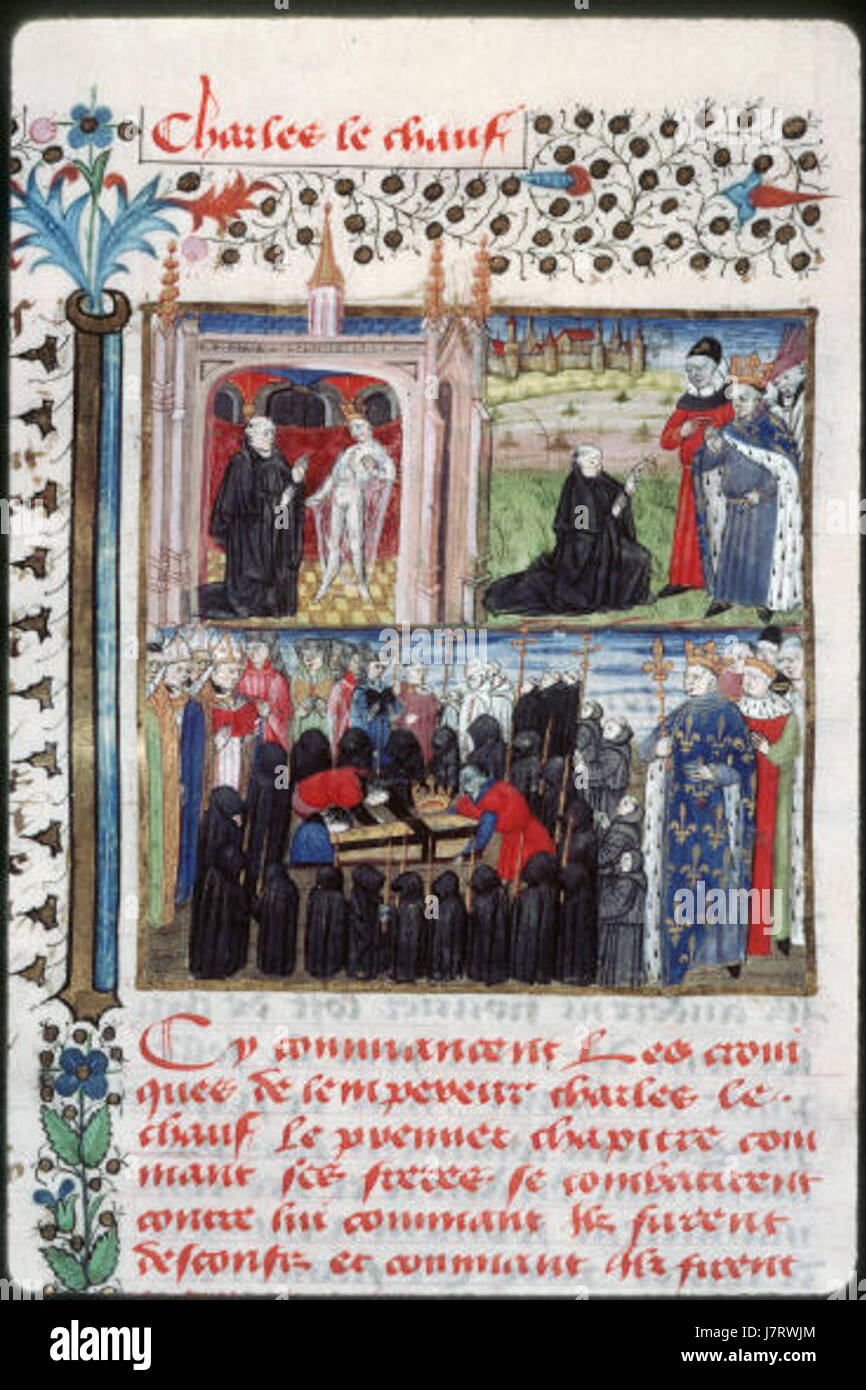 Charles le chauf
Cy commancent Les croni
ques de lempereur charles le
chauf Le premier chapitre com
mant ses freres se combatirent
contre lui commant Ilz furent
desconfiz et commant Ilz furent
alamy
a
alamy
Image ID: J7RWJM
www.alamy.com